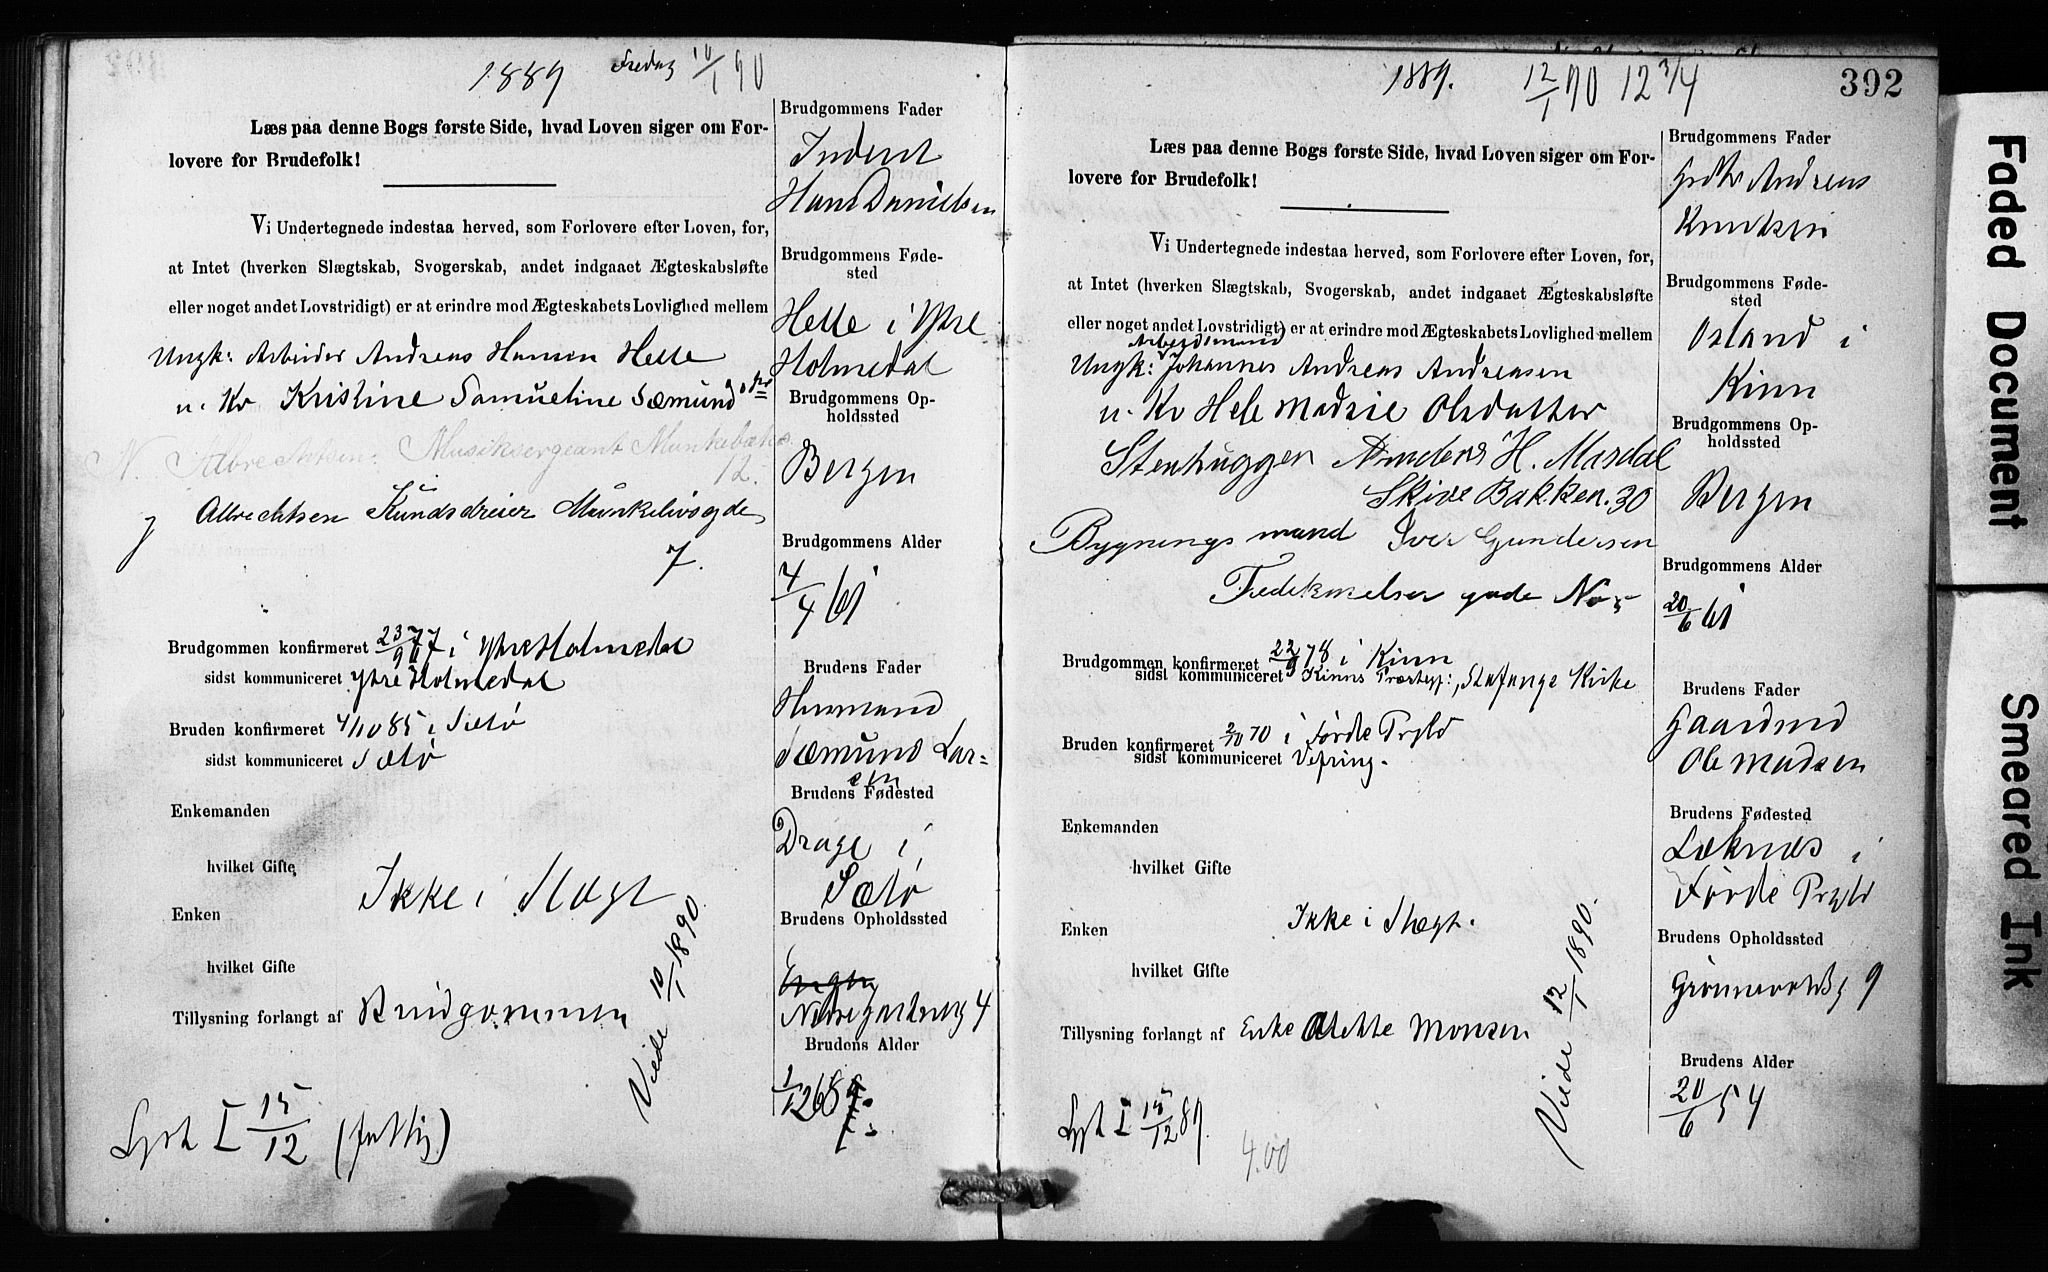 1889 Fredag 10/1 90
Læs paa denne Bogs første Side, hvad Loven siger om For-
lovere for Brudefolk!
Vi Undertegnede indestaa herved, som Forlovere efter Loven, for,
at Intet (hverken Slægtskab, Svogerskab, andet indgaaet Ægteskabsløfte
eller noget andet Lovstridigt) er at erindre mod Ægteskabets Lovlighed mellem
Ungk: Arbeider Andreas Hansen Helle
u. Kv Kristine Samueline Sæmundsdtr
N. Albrechtsen. Musiksergeant Munkebæks
12.
Albrechtsen Kundsdreier Munkelivsgde
7.
Brudgommen konfirmeret 23/9 77 i Ytre Holmedal
sidst kommuniceret Ytre Holmedal
Bruden konfirmeret 4/10 85 i Sælø
sidst kommuniceret Sælø
Enkemanden
hvilket Gifte
Ikke i Slægt
Enken
hvilket Gifte
Tillysning forlangt af Brudgommen
Viede 10/1 1890.
Lyst I 15/12 (fattig)
Brudgommens Fader
Inderst
Hans Danielsen
BrudgommensFøde-
sted
Helle i Ytre
Holmedal
Brudgommens Op-
holdssted
Bergen
Brudgommens Alder
4/4 61
Brudens Fader
Husmand
Sæmund Lar=
sen
Brudens Fødested
Drage i
Sælø
Brudens Opholdssted
Engen
4
Brudens Alder
1/12 68
1889. 12/1 90 12 3/4
392
Læs paa denne Bogs første Side, hvad Loven siger om For-
lovere for Brudefolk!
Vi Undertegnede indestaa herved, som Forlovere efter Loven, for,
at Intet (hverken Slægtskab, Svogerskab, andet indgaaet Ægteskabsløfte
eller noget andet Lovstridigt) er at erindre mod Ægteskabets Lovlighed mellem
Arbeidsmand
Ungk: Johannes Andreas Andreasen
u. Kv Hele Madsie Olsdatter
Stenhugger H. Masdal
Skive Bakken. 30
Bygnings mand Iver Gundersen
gade No
Brudgommen konfirmeret 22/9 78 i Kinn
sidst kommuniceret Kinns Præstegj:, Stafangs Kirke
Bruden konfirmeret 2/10 70 i Førde Prgld
sidst kommuniceret Vefring.
Enkemanden
hvilket Gifte
Ikke i Slægt.
Enken
hvilket Gifte
Tillysning forlangt af Enke Monsen
Viede 12/1 1890.
Lyst I 15/12 89.
4.00
Brudgommens Fader
Andreas
Knudsen
Brudgommens Føde-
sted
Osland i
Kinn
Brudgommens Op-
holdssted
Bergen
Brudgommens Alder
20/6 61
Brudens Fader
Gaardmd
Ole Madsen
Brudens Fødested
Løknæs i
Førde Prgld
Brudens Opholdssted
Grønnevoldsg 9
Brudens Alder
20/6 54
Faded Document
Smeared Ink